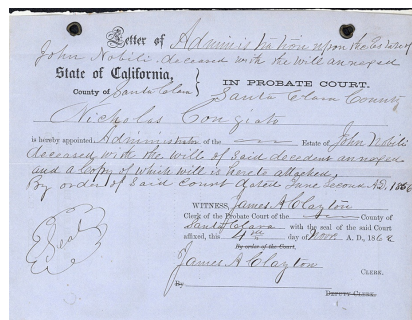 Letter of Administration upon the Estate of
John Nobili deceased with the will annexed
State of California,
County of Santa Clara
IN PROBATE COURT.
Santa Clara County
Nicholas Congiato
is hereby appointed Administrator of the Estate of John Nobili
deceased with the will of said decedent annexed
and a Copy of which will is hereto attached,
By order of said Court dated June Second A.D. 1856
WITNESS, James A Clayton
Clerk of the Probate Court of the County of
Santa Clara with the seal of the said Court
affixed, this 4th day of Novr. A. D., 1862
By order of the Court,
James A Clayton
CLERK.
By
DEPUTY CLERK.
Seal